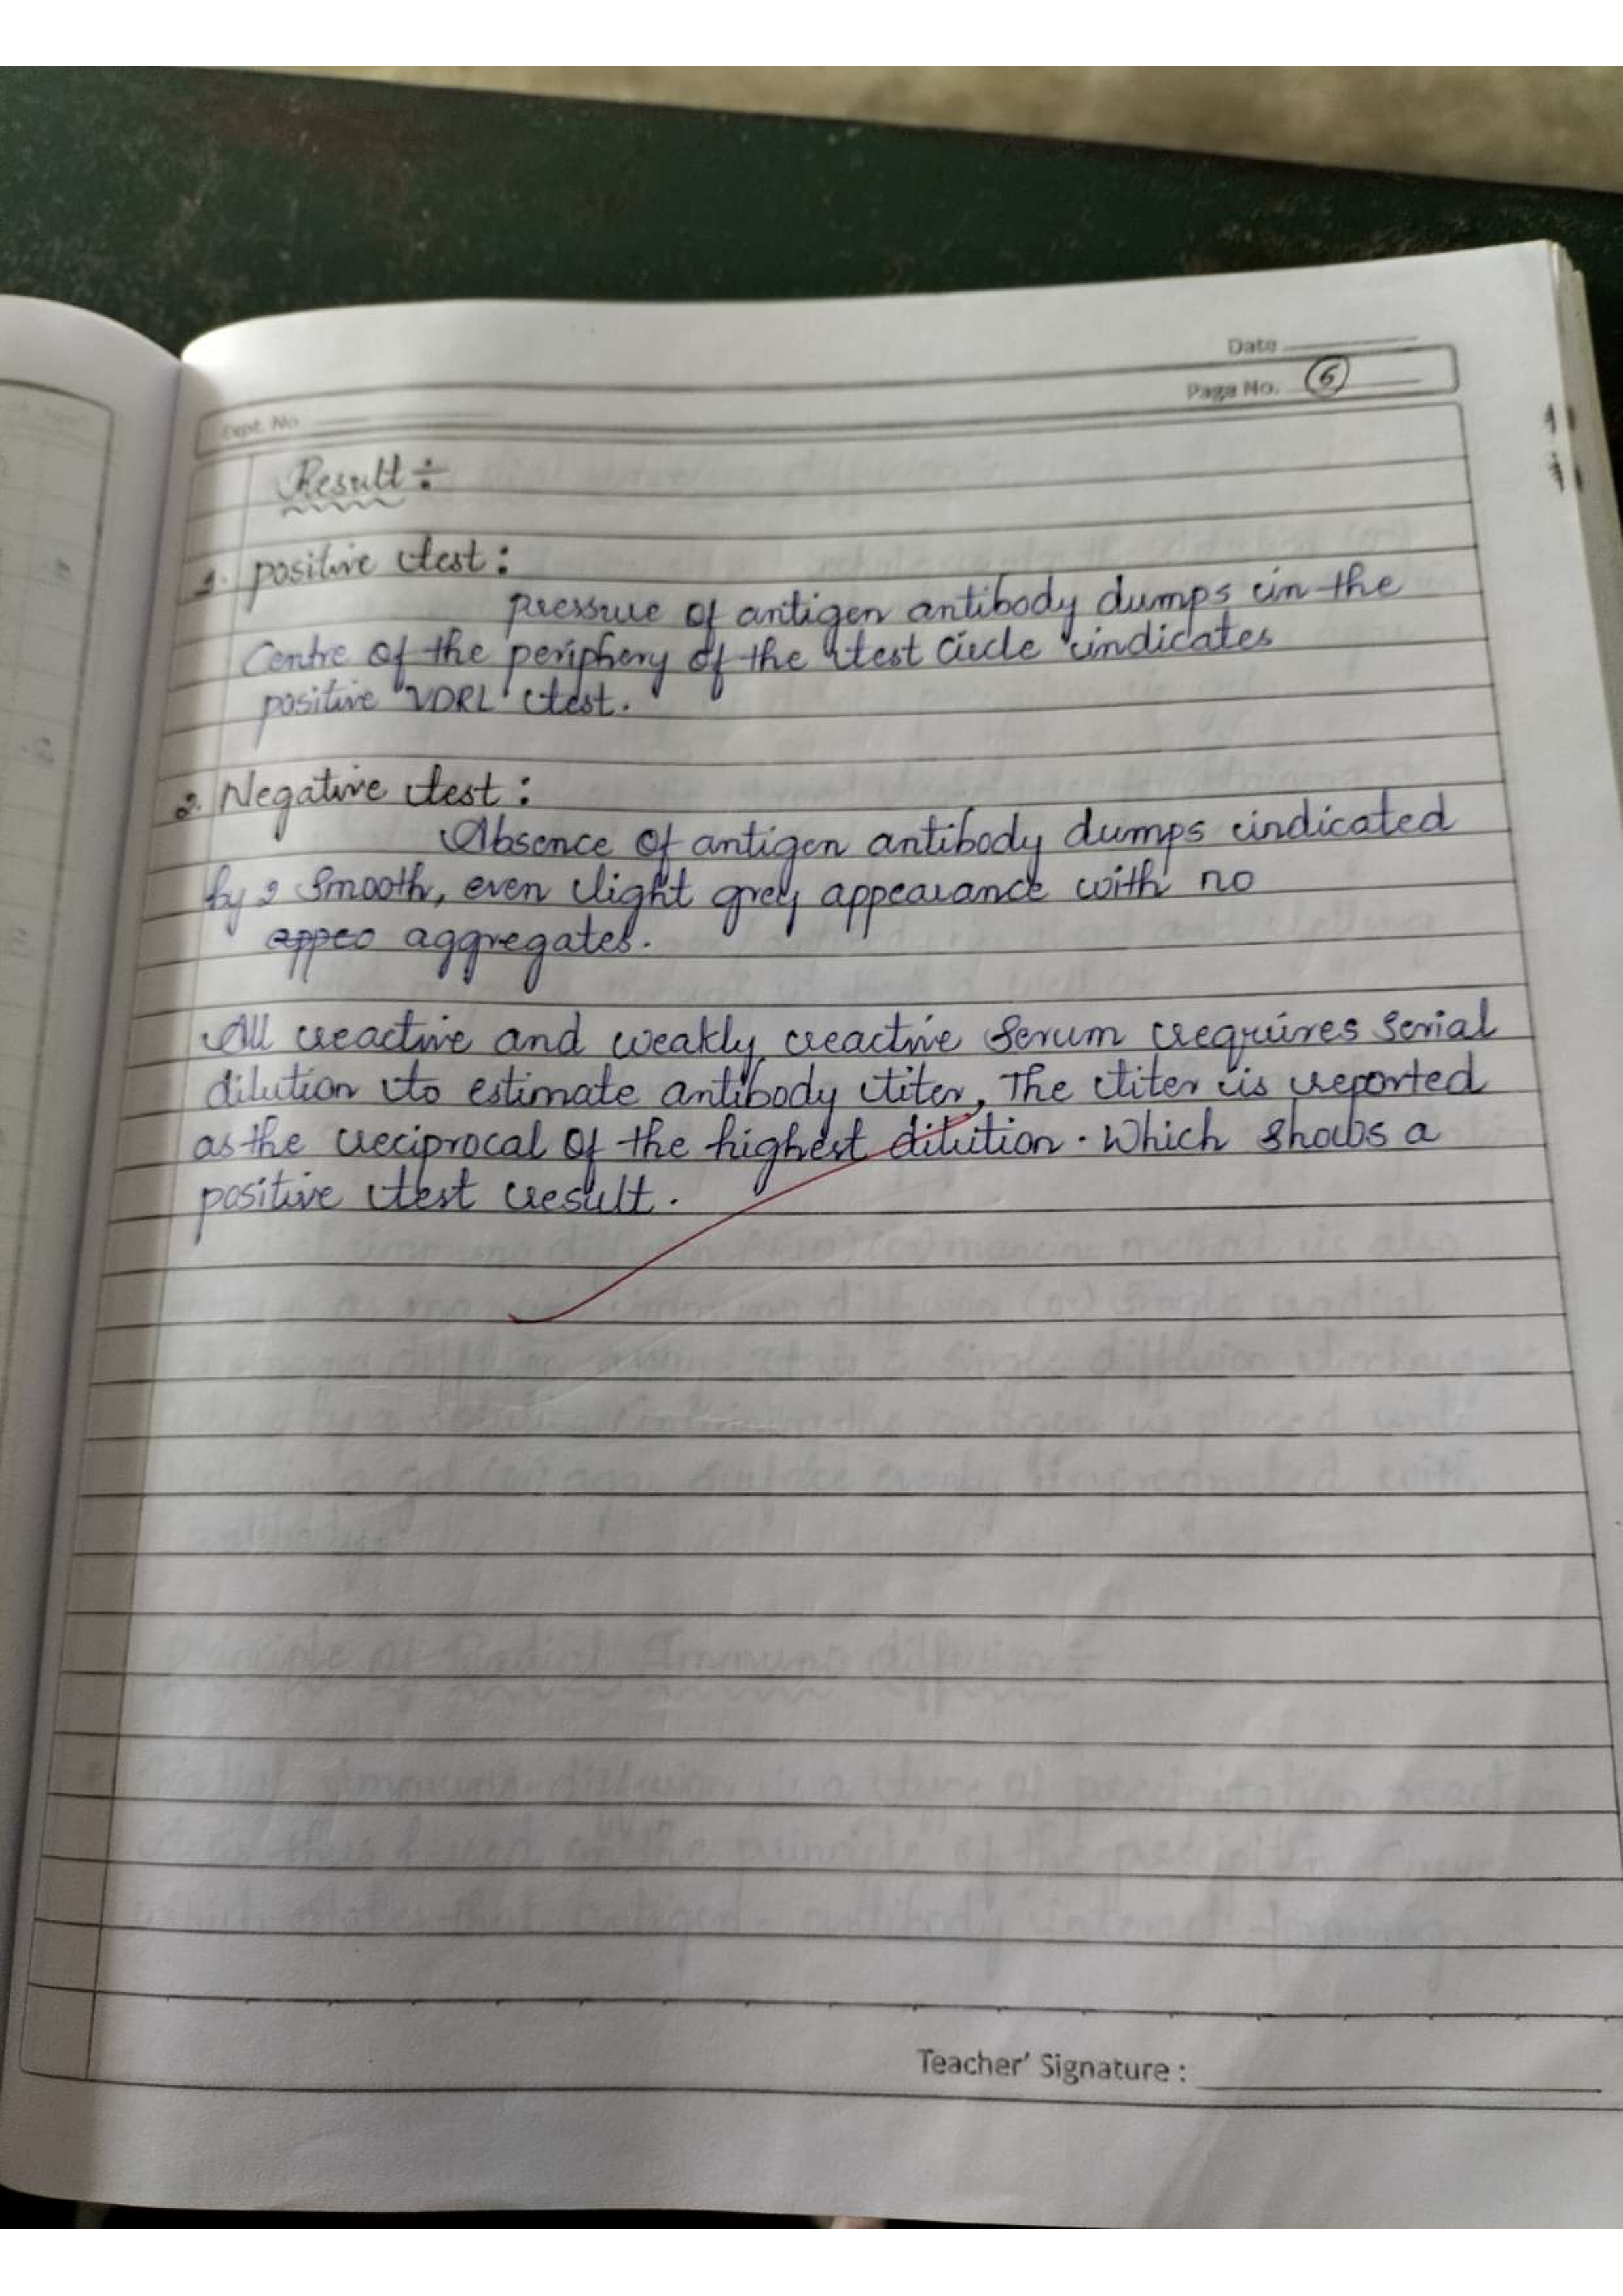 Date
Page No. 6
Expt. No
Result ÷
1. positive test :
pressure of antigen antibody dumps in the
Centre of the periphery of the test circle indicates
positive "VDRL" test.
2. Negative test :
Absence of antigen antibody dumps indicated
by 2 Smooth, even light grey appearance with no
appeo aggregates.
All reactive and weakly reactive Serum requires Serial
dilution to estimate antibody titer, The titer is reported
as the reciprocal of the highest dilution. Which shows a
positive test result.
Teacher' Signature :